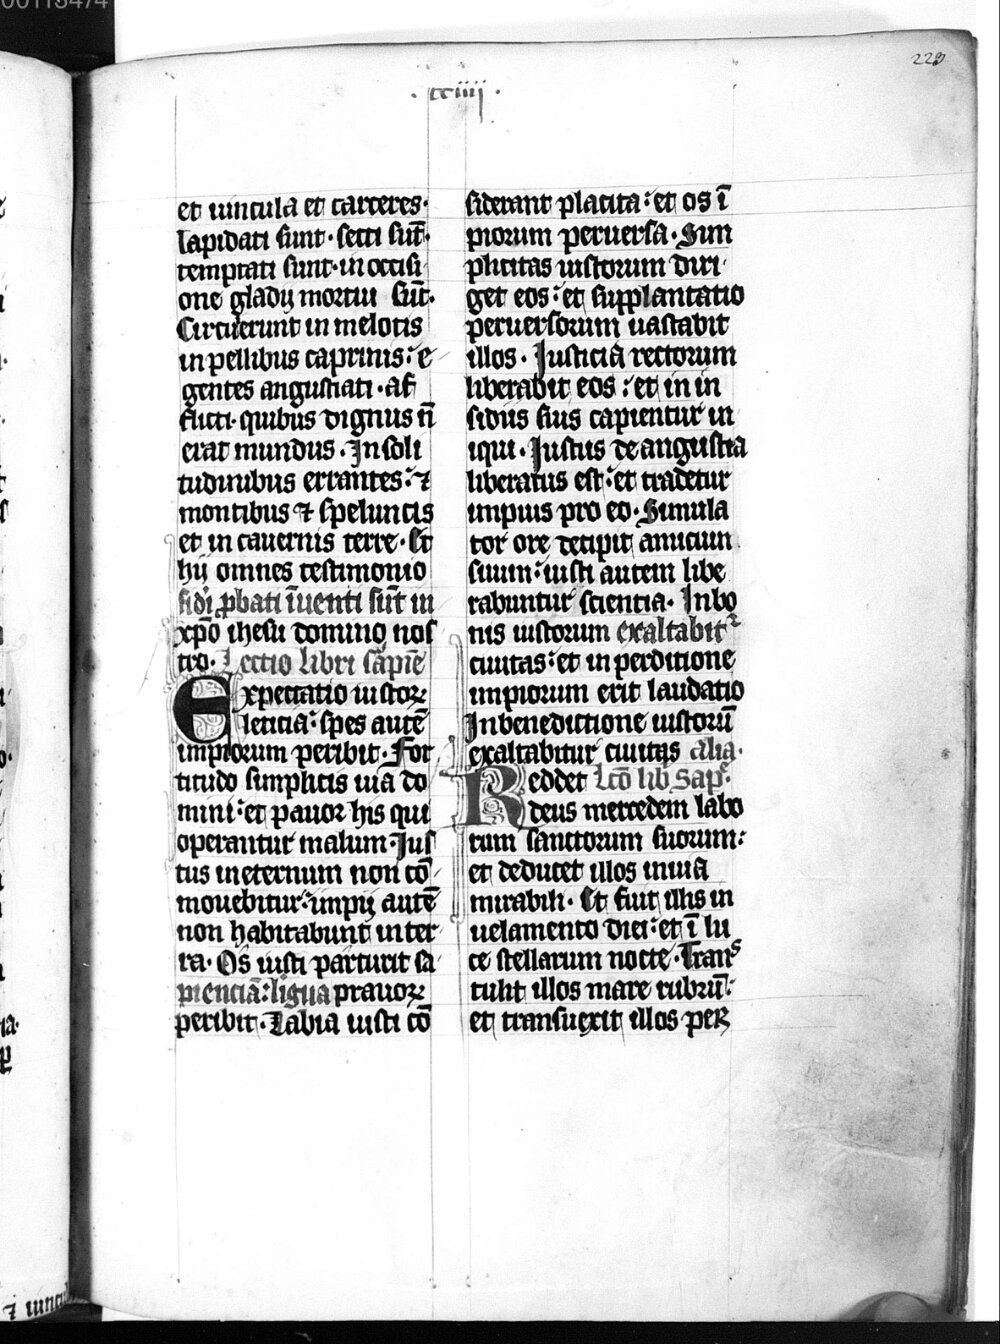 00113474
223
· cciiij ·
et uincula et carceres·
lapidati sunt· secti sūt·
temptati sunt· in occisi
one gladij mortui sūt·
Circuierunt in melotis
in pellibus caprinis: e
gentes angustiati· af
flicti· quibus dignus n̄
erat mundus· In soli
tudinibus errantes: ⁊
montibus ⁊ speluncis
et in cauernis terre· Et
hij omnes testimonio
fidi ꝓbati īuenti sūt in
xpō ihesu domino nos
tro· Lectio libri sapīe
Expectatio iustoꝝ
leticia: spes autē
impiorum peribit· For
titudo simplicis uia do
mini: et pauor his qui
operantur malum· Jus
tus in eternum non cō
mouebitur: impij autē
non habitabunt in ter
ra· Os iusti parturit sa
pienciā: ligua prauoꝝ
peribit· Labia iusti cō
siderant placita: et os ī
piorum peruersa· Sim
plicitas iustorum diri
get eos: et supplantatio
peruersorum uastabit
illos· Justicia rectorum
liberabit eos: et in in
sidiis suis capientur in
iqui· Justus de angustia
liberatus est: et tradetur
impius pro eo· Simula
tor ore decipit amicum
suum: iusti autem libe
rabuntur scientia· In bo
nis iustorum exaltabit᷑
ciuitas: et in perditione
impiorum erit laudatio
In benedictione iustorū
exaltabitur ciuitas alia·
Reddet Lcō lib Sap̄e·
deus mercedem labo
rum sanctorum suorum:
et deducet illos in uia
mirabili· Et fuit illis in
uelamento diei: et ī lu
ce stellarum nocte· Trans
tulit illos mare rubrū:
et transuexit illos per
⁊ uincu